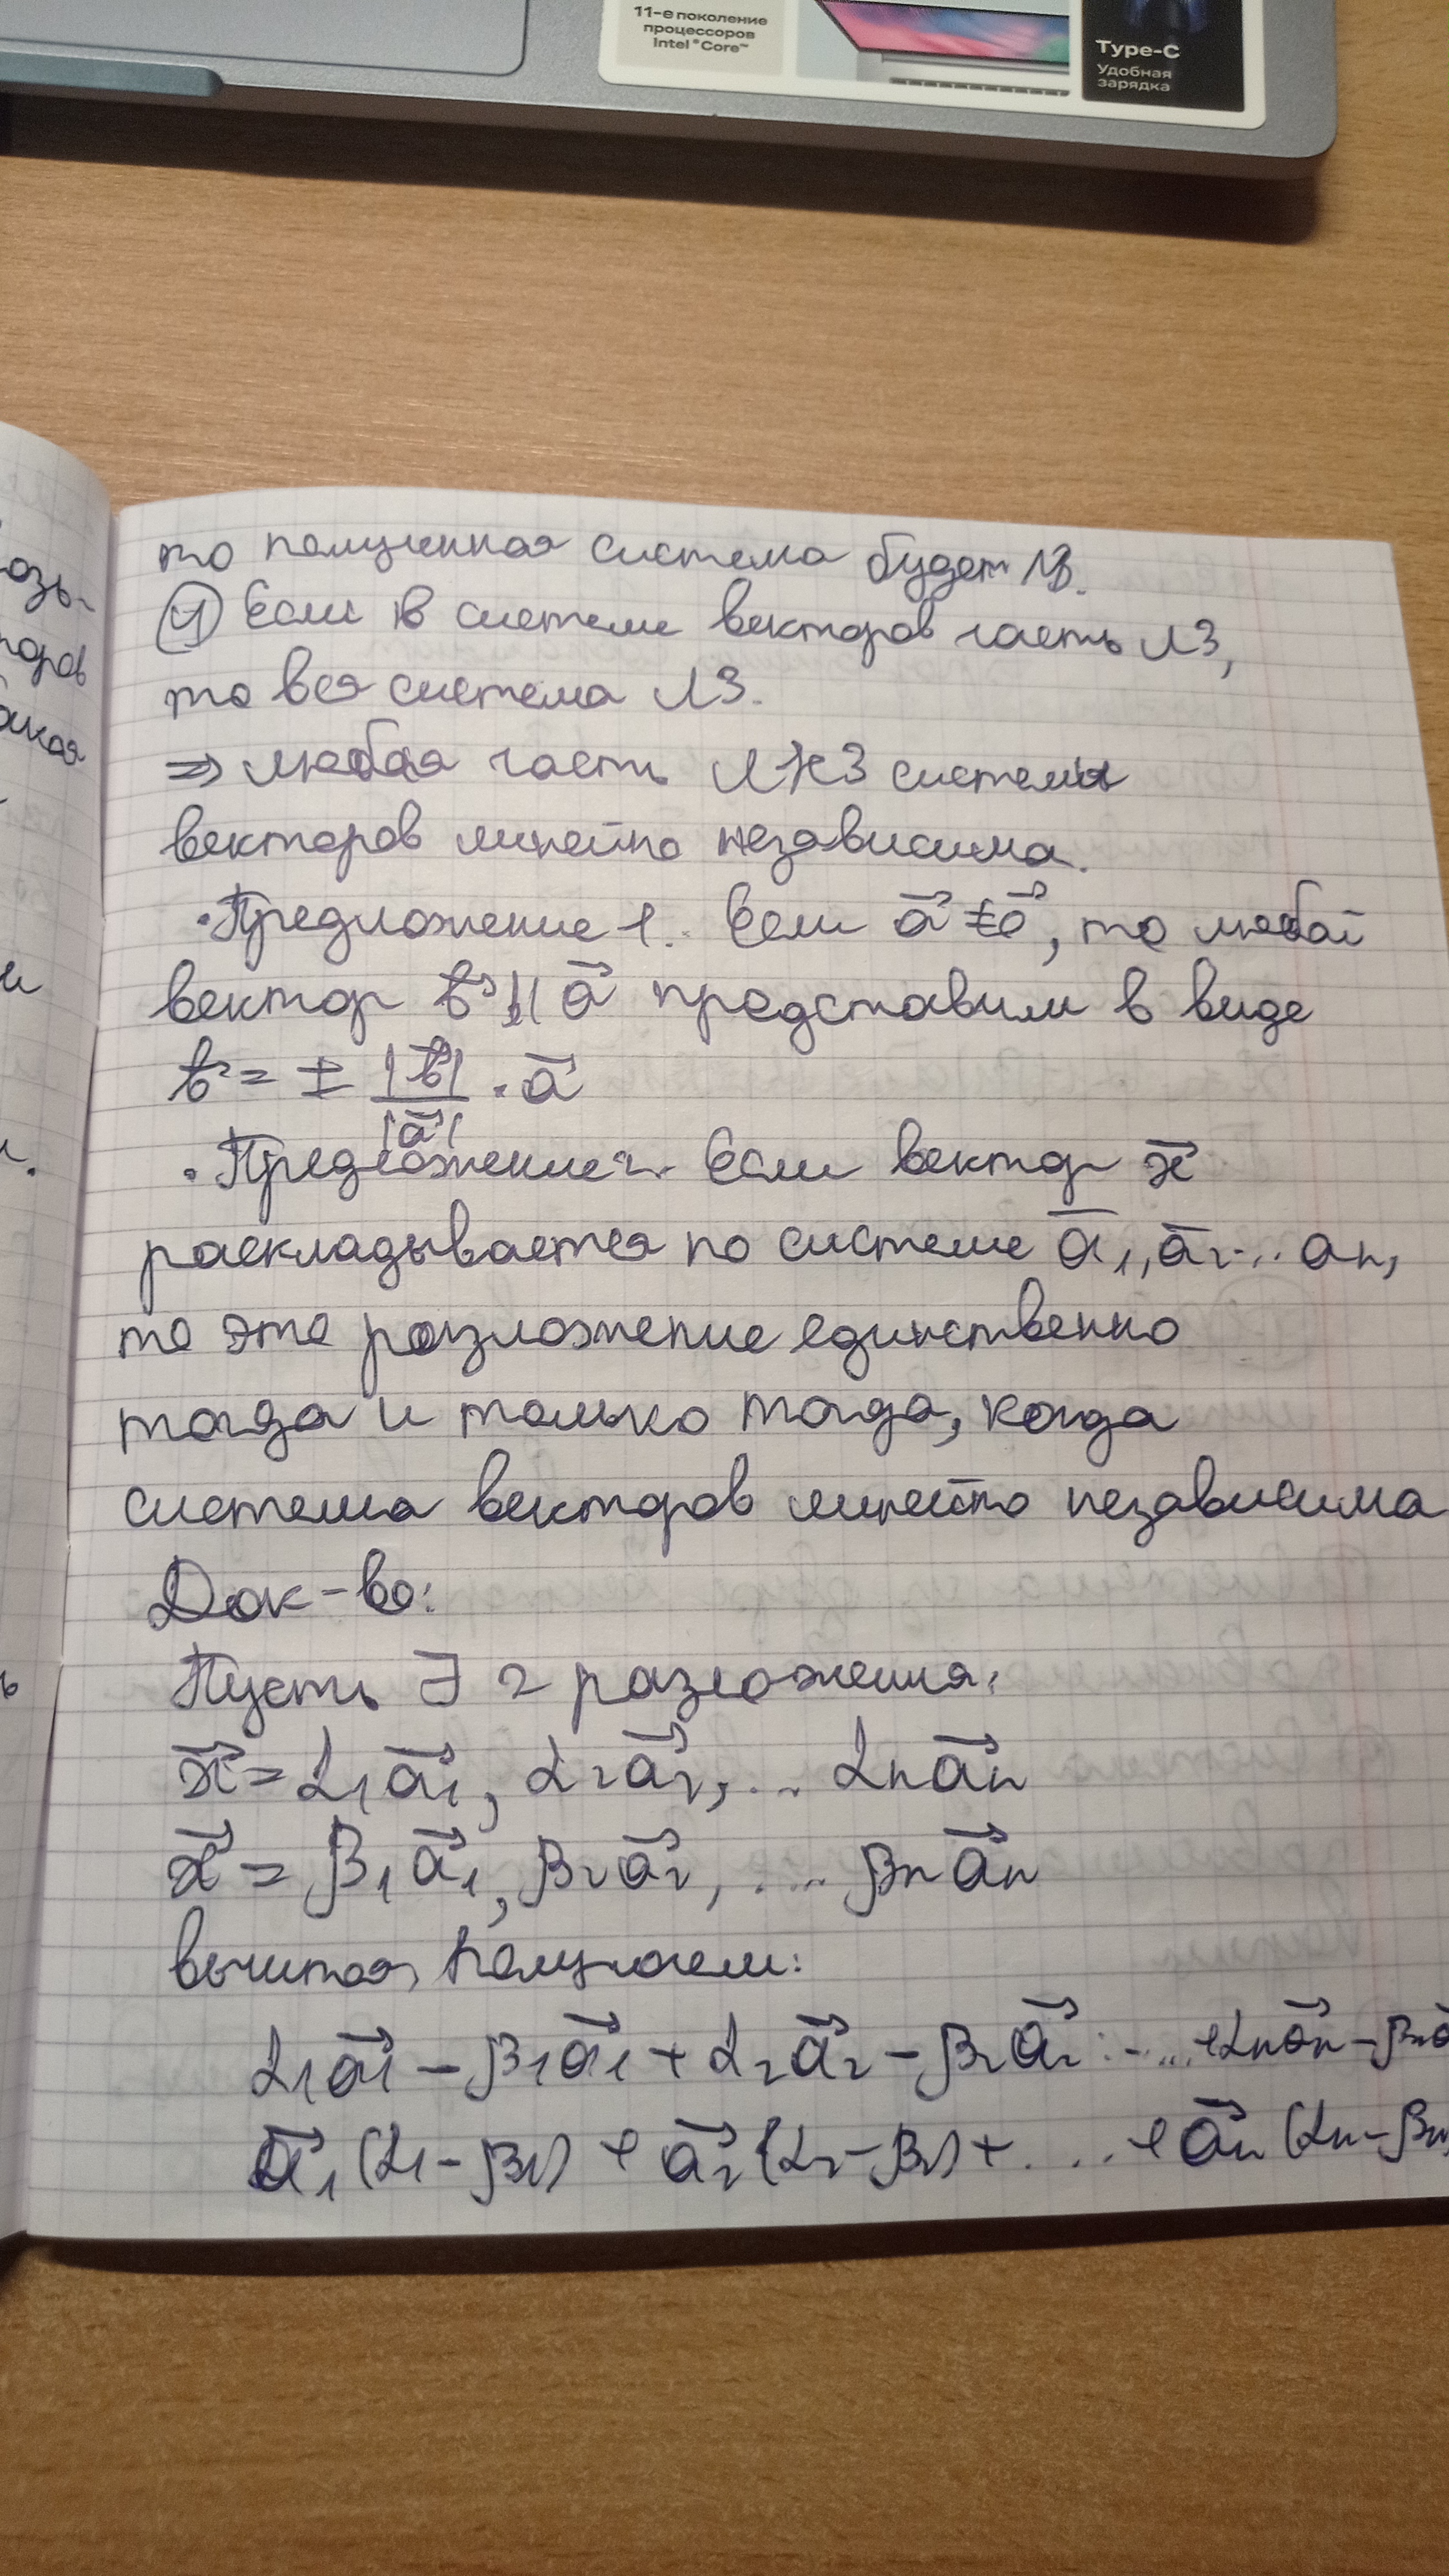 11-е поколение
процессоров
Intel® Core™
Type-C
Удобная
зарядка
то полученная система будет ЛЗ.
④ Если в системе векторов часть ЛЗ,
то вся система ЛЗ.
⇒ любая часть ЛНЗ системы
векторов линейно независима.
• Предложение 1. Если a⃗ ≠ o⃗, то любой
вектор b⃗ || a⃗ представим в виде
b⃗ = ± |b⃗| / |a⃗| · a⃗
• Предложение 2. Если вектор x⃗
раскладывается по системе a̅₁, a̅₂... aₙ,
то это разложение единственно
тогда и только тогда, когда
система векторов линейно независима
Док-во:
Пусть ∃ 2 разложения:
x⃗ = α₁a⃗₁, α₂a⃗₂, ... αₙa⃗ₙ
x⃗ = β₁a⃗₁, β₂a⃗₂, .... βₙa⃗ₙ
вычитая, получаем:
α₁a⃗₁ − β₁a⃗₁ + α₂a⃗₂ − β₂a⃗₂ ... + αₙa⃗ₙ − βₙa⃗
a⃗₁(α₁ − β₁) + a⃗₂(α₂ − β₂) + .... + a⃗ₙ(αₙ − βₙ
озь-
торов
акая